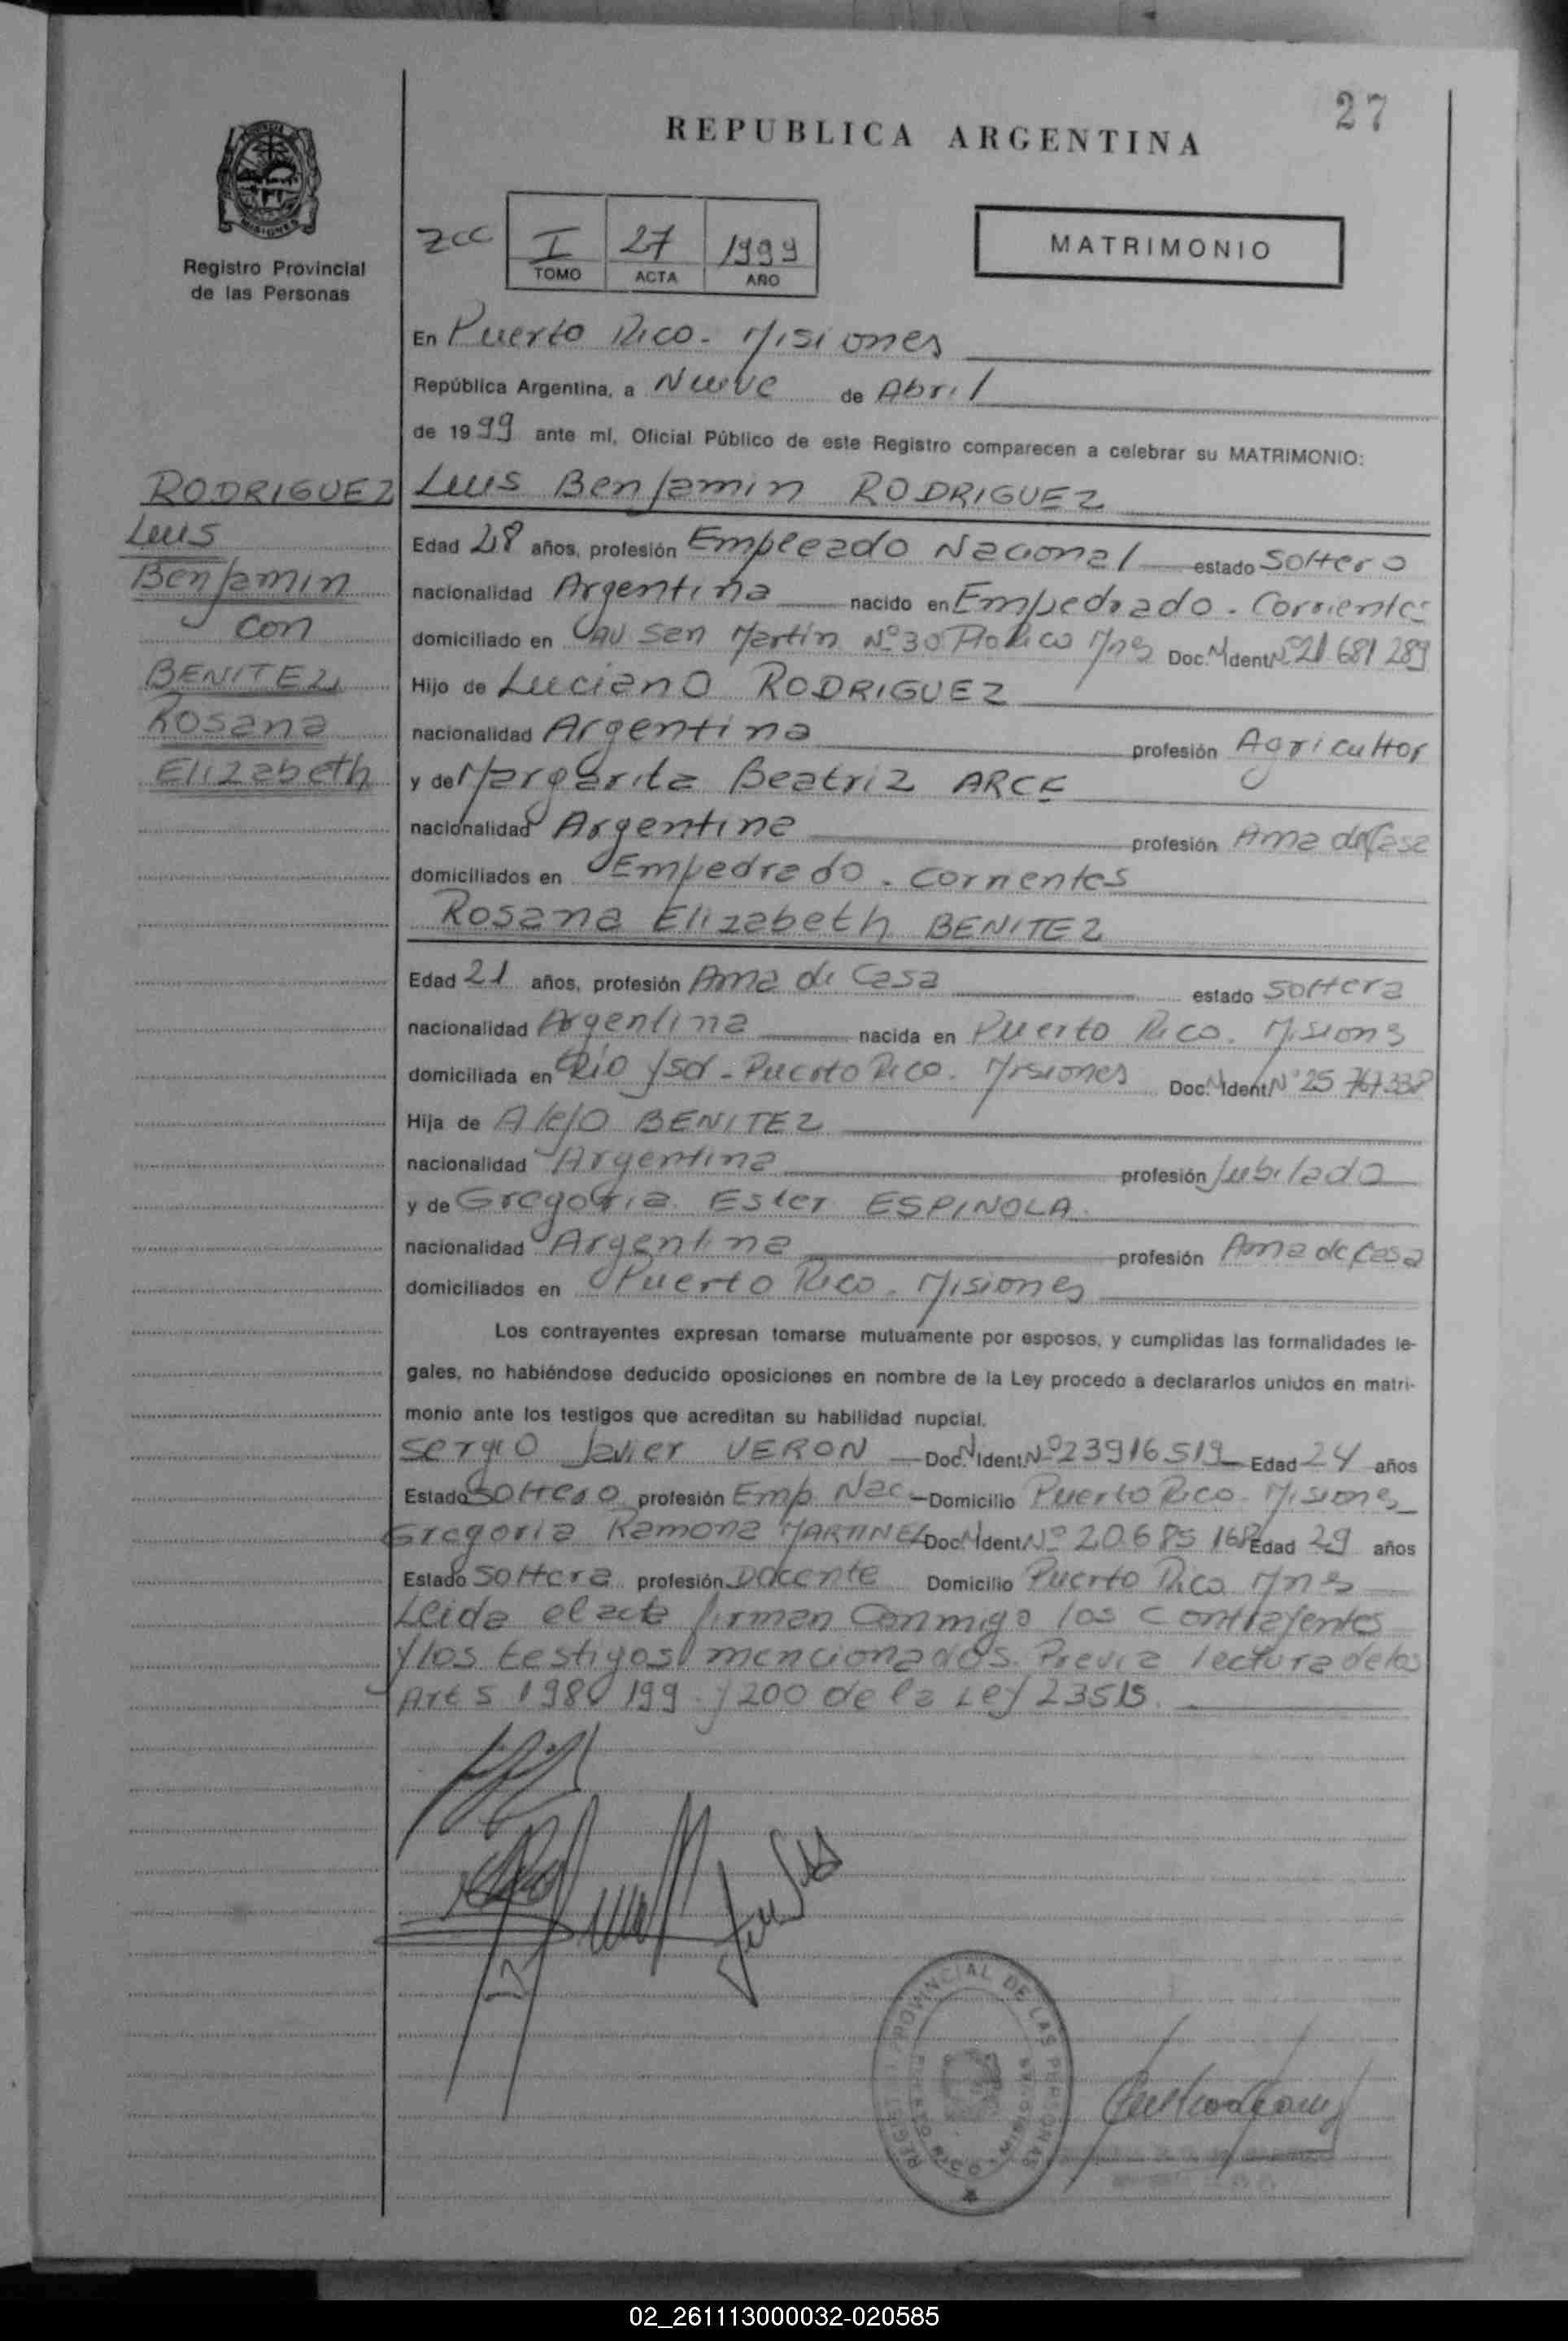 27
REPUBLICA ARGENTINA
MISIONES
Registro Provincial
de las Personas
zcc I 27 1999
TOMO ACTA AÑO
MATRIMONIO
En Puerto Rico - Misiones
República Argentina, a Nueve de Abril
de 1999 ante mí, Oficial Público de este Registro comparecen a celebrar su MATRIMONIO:
RODRIGUEZ
Luis
Benjamin
con
BENITEZ
Rosana
Elizabeth
Luis Benjamin RODRIGUEZ
Edad 28 años, profesión Empleado Nacional estado Soltero
nacionalidad Argentina nacido en Empedrado - Corrientes
domiciliado en Av San Martin Nº 30 Pto Rico Mnes Doc. N Ident. Nº 21 681 289
Hijo de Luciano RODRIGUEZ
nacionalidad Argentina profesión Agricultor
y de Margarita Beatriz ARCE
nacionalidad Argentina profesión Ama de Casa
domiciliados en Empedrado - Corrientes
Rosana Elizabeth BENITEZ
Edad 21 años, profesión Ama de Casa estado Soltera
nacionalidad Argentina nacida en Puerto Rico - Misions
domiciliada en Puerto Rico - Misiones Doc. N Ident. Nº 25 767 338
Hija de Alejo BENITEZ
nacionalidad Argentina profesión Jubilado
y de Gregoria Ester ESPINOLA
nacionalidad Argentina profesión Ama de Casa
domiciliados en Puerto Rico - Misiones
Los contrayentes expresan tomarse mutuamente por esposos, y cumplidas las formalidades le-
gales, no habiéndose deducido oposiciones en nombre de la Ley procedo a declararlos unidos en matri-
monio ante los testigos que acreditan su habilidad nupcial.
Sergio Javier VERON Doc. N Ident. Nº 23916519 Edad 24 años
Estado Soltero profesión Emp. Nac. Domicilio Puerto Rico - Misiones
Gregoria Ramona MARTINEZ Doc. N Ident. Nº 20.685 168 Edad 29 años
Estado Soltera profesión Docente Domicilio Puerto Rico Mnes
Leida el acta firman conmigo los contrayentes
y los testigos mencionados. Previa lectura de los
Arts 198, 199 y 200 de la Ley 23515.
REGISTRO PROVINCIAL DE LAS PERSONAS
PUERTO RICO MISIONES
02_261113000032-020585